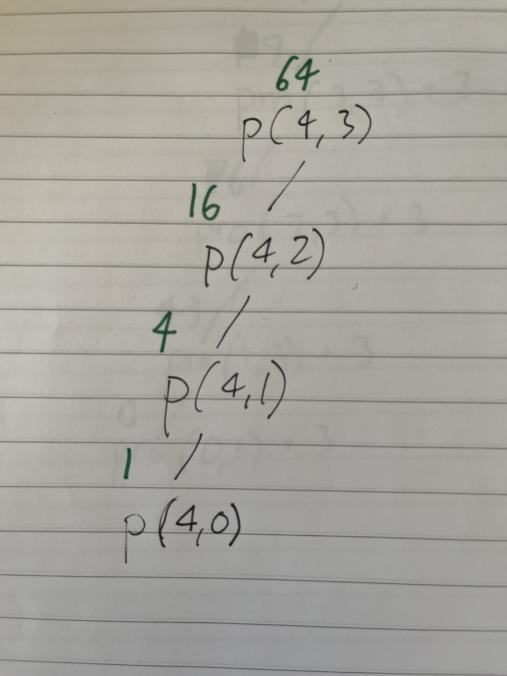 64
p(4,3)
16
p(4,2)
4
p(4,1)
1
p(4,0)